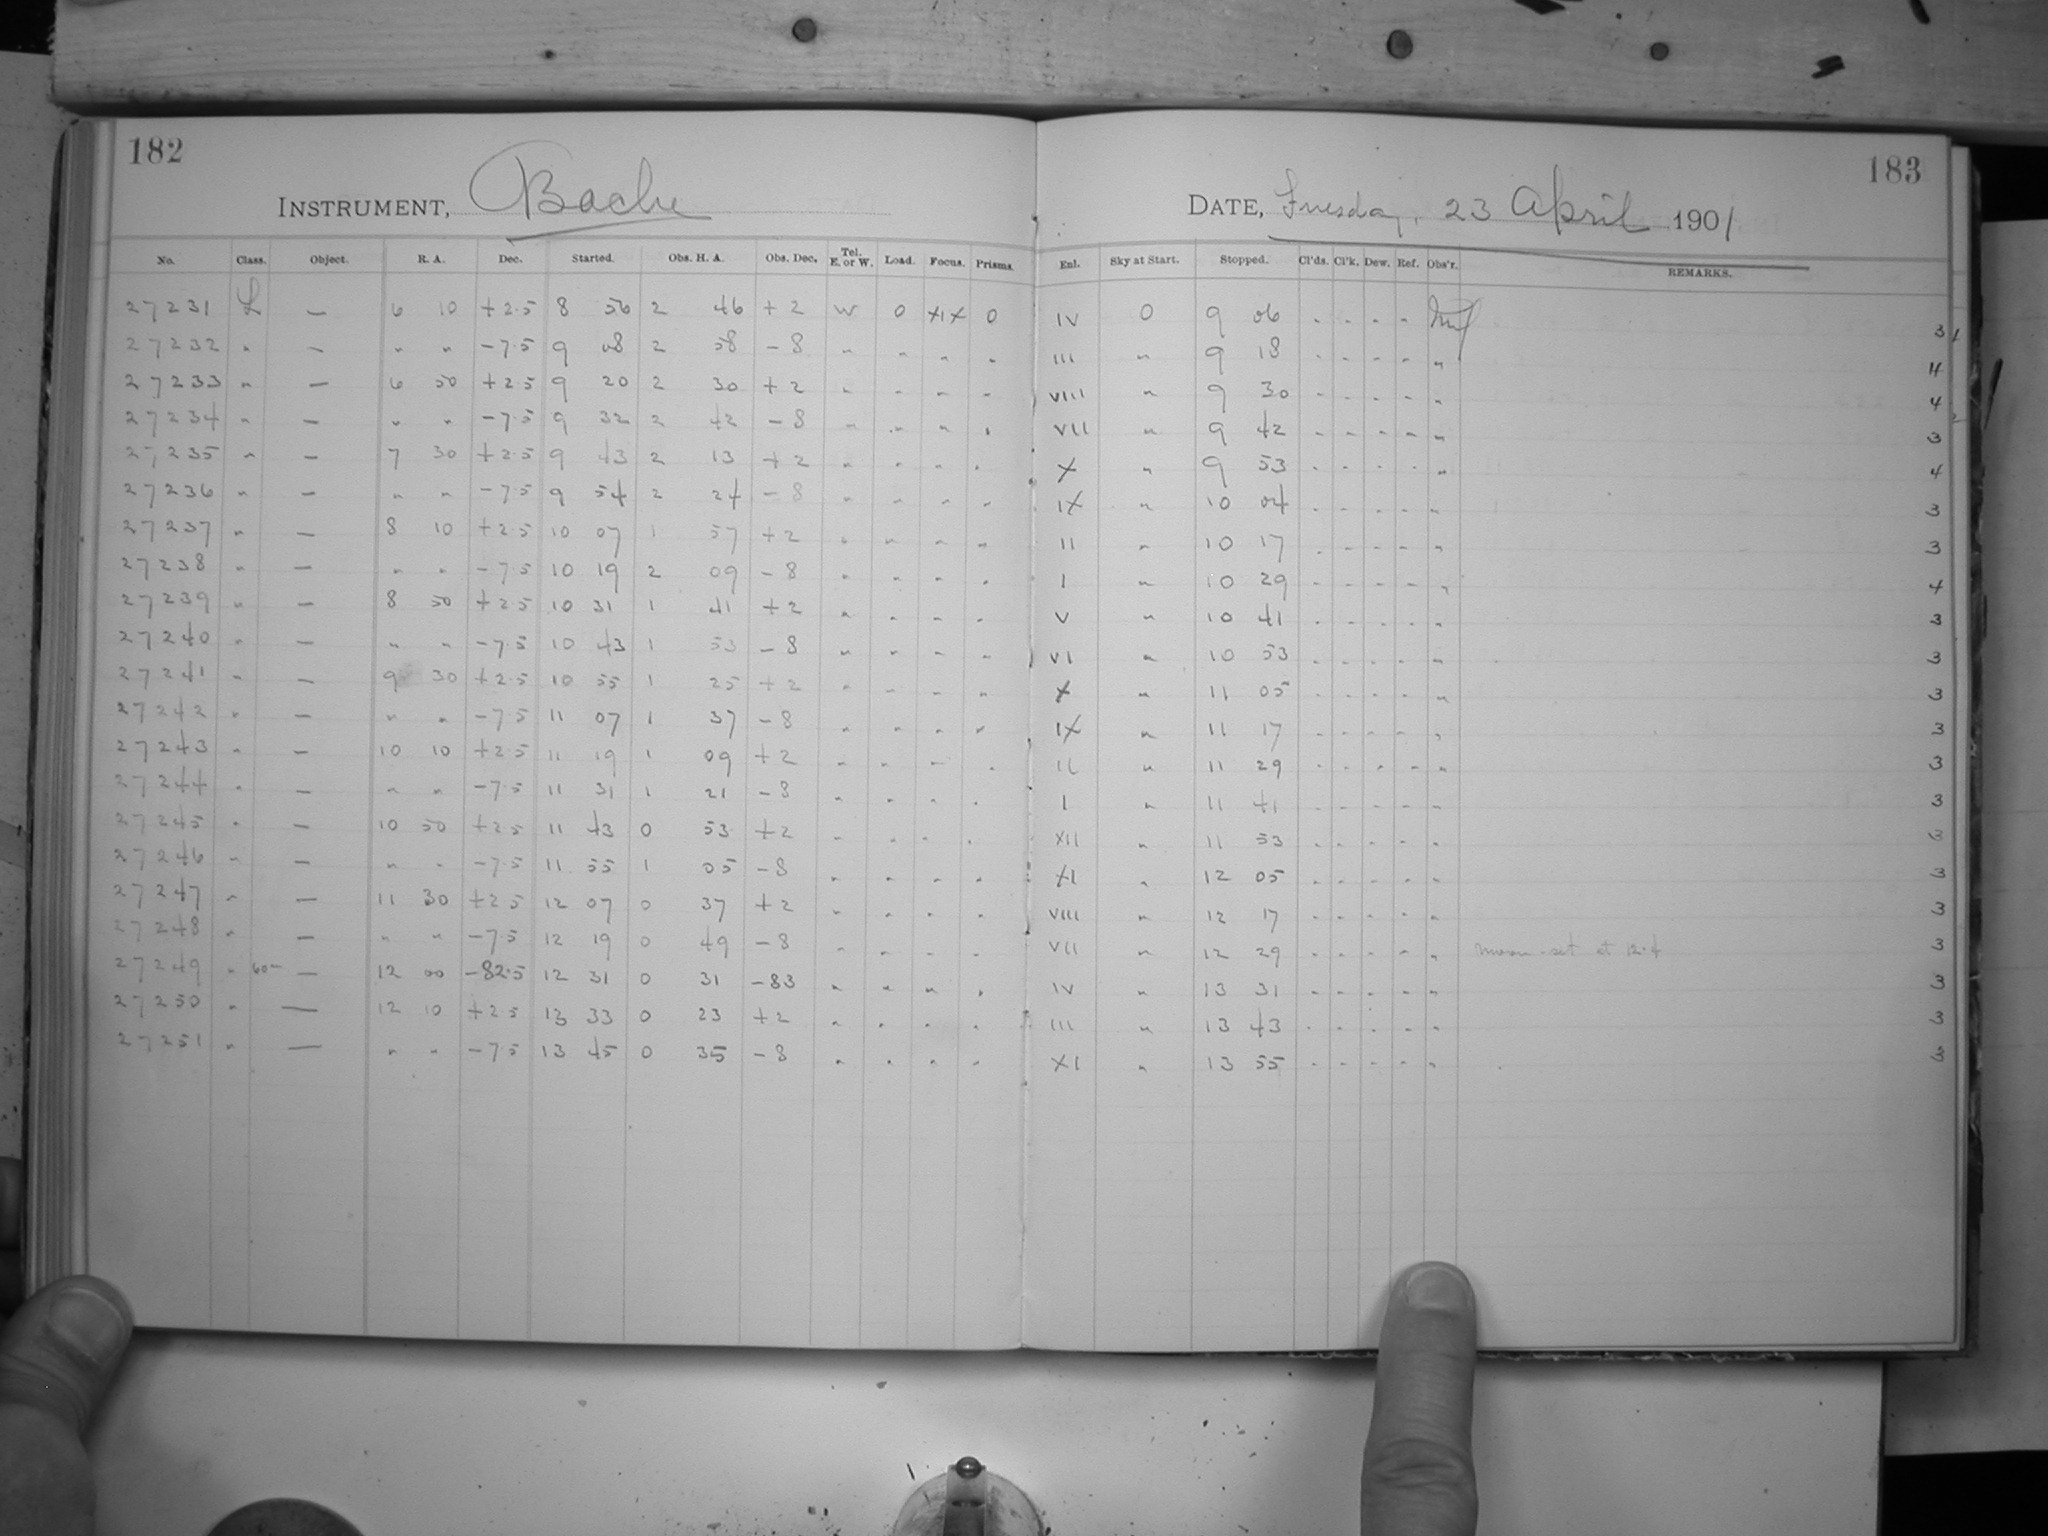 182
183
INSTRUMENT, Bache
DATE, Tuesday, 23 April 1901
No. Class. Object. R. A. Dec. Started. Obs. H. A. Obs. Dec. Tel. E. or W. Load. Focus. Prisms. Enl. Sky at Start. Stopped. Cl'ds. Cl'k. Dew. Ref. Obs'r. REMARKS.
27231 L — 6 10 +2.5 8 56 2 46 +2 W 0 XIX 0 IV 0 9 06 - - - - 3
27232 " — " " -7.5 9 08 2 58 -8 " " " " III " 9 18 - - - - " 4
27233 " — 6 50 +2.5 9 20 2 30 +2 " " " " VIII " 9 30 - - - - " 4
27234 " — " " -7.5 9 32 2 42 -8 " " " " VII " 9 42 - - - - " 3
27235 " — 7 30 +2.5 9 43 2 13 +2 " " " " X " 9 53 - - - - " 4
27236 " — " " -7.5 9 54 2 24 -8 " " " " IX " 10 04 - - - - " 3
27237 " — 8 10 +2.5 10 07 1 57 +2 " " " " II " 10 17 - - - - " 3
27238 " — " " -7.5 10 19 2 09 -8 " " " " I " 10 29 - - - - " 4
27239 " — 8 50 +2.5 10 31 1 41 +2 " " " " V " 10 41 - - - - " 3
27240 " — " " -7.5 10 43 1 53 -8 " " " " VI " 10 53 - - - - " 3
27241 " — 9 30 +2.5 10 55 1 25 +2 " " " " X " 11 05 - - - - " 3
27242 " — " " -7.5 11 07 1 37 -8 " " " " IX " 11 17 - - - - " 3
27243 " — 10 10 +2.5 11 19 1 09 +2 " " " " II " 11 29 - - - - " 3
27244 " — " " -7.5 11 31 1 21 -8 " " " " I " 11 41 - - - - " 3
27245 " — 10 50 +2.5 11 43 0 53 +2 " " " " XII " 11 53 - - - - " 3
27246 " — " " -7.5 11 55 1 05 -8 " " " " XI " 12 05 - - - - " 3
27247 " — 11 30 +2.5 12 07 0 37 +2 " " " " VIII " 12 17 - - - - " 3
27248 " — " " -7.5 12 19 0 49 -8 " " " " VII " 12 29 - - - - " moon set at 12.4 3
27249 " 60m — 12 00 -82.5 12 31 0 31 -83 " " " " IV " 13 31 - - - - " 3
27250 " — 12 10 +2.5 13 33 0 23 +2 " " " " III " 13 43 - - - - " 3
27251 " — " " -7.5 13 45 0 35 -8 " " " " XI " 13 55 - - - - " 3